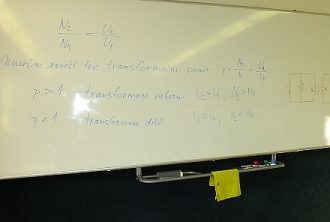 N₂/N₁ = U₂/U₁
zavést tzv transformační poměr p = N₂/N₁ = U₂/U₁
p > 1 transformace nahoru U₂ > U₁, N₂ > N₁
p < 1 transformace dolů U₂ < U₁, N₂ < N₁